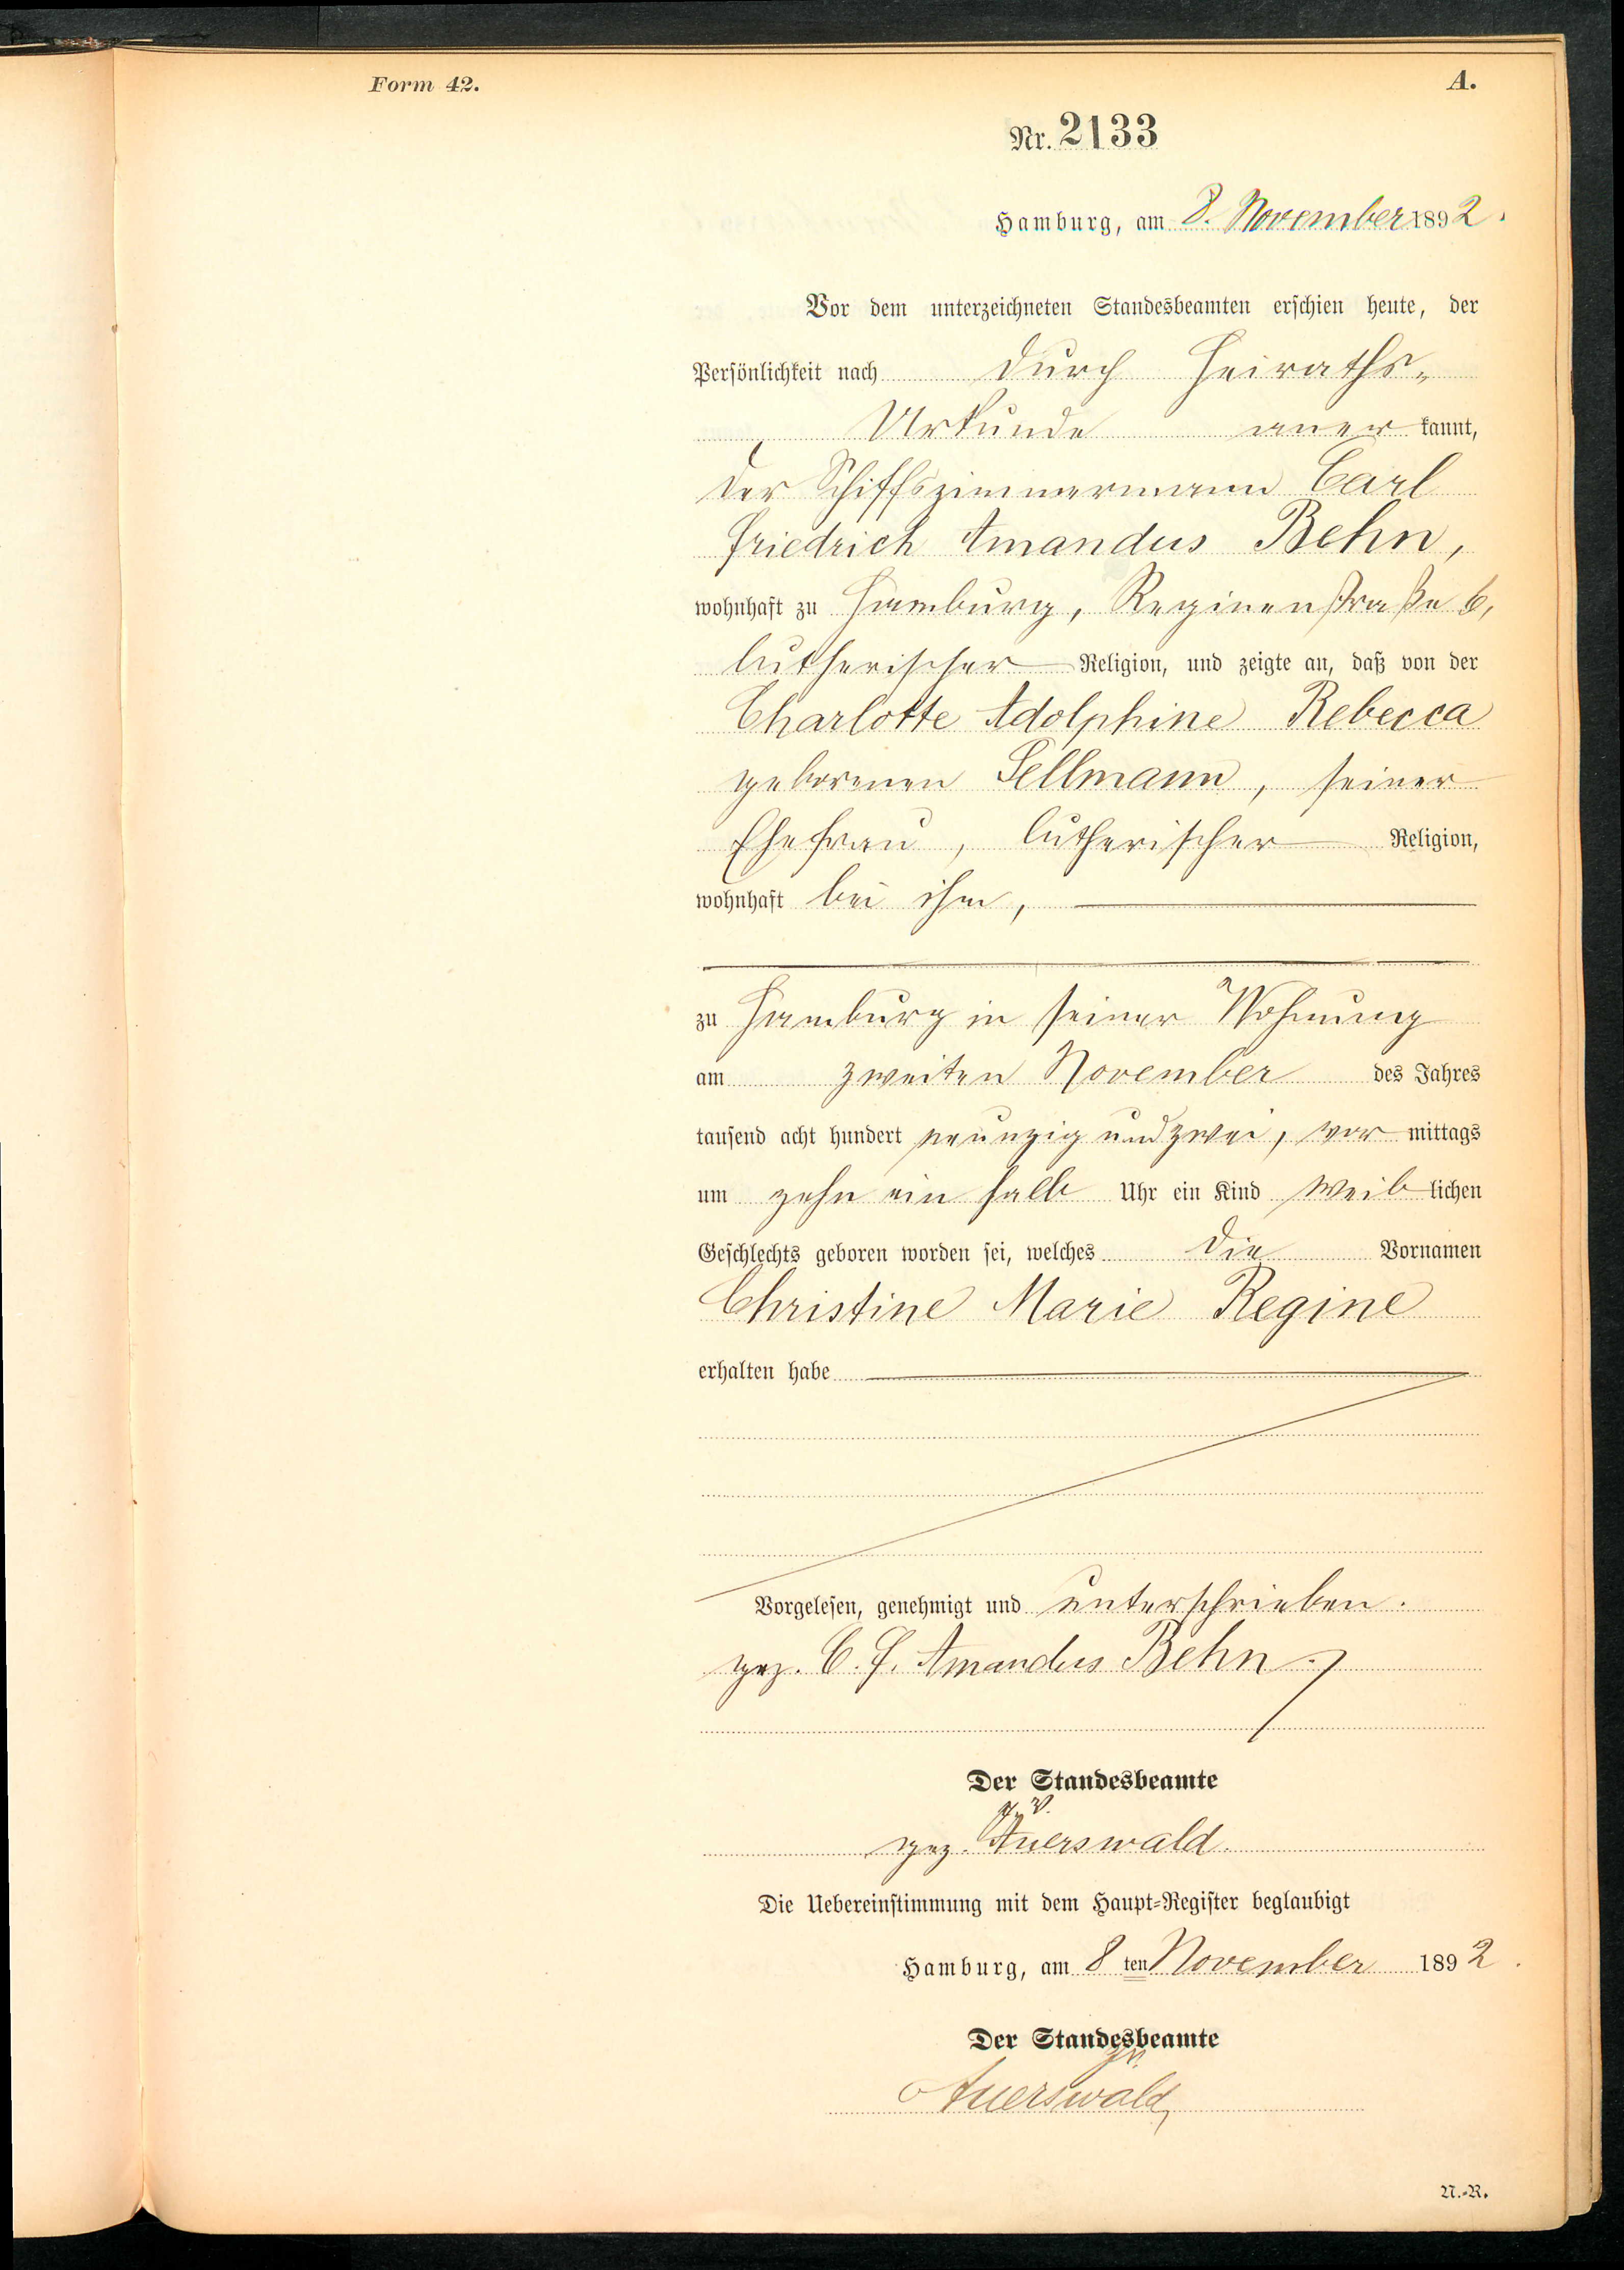 Form 42.
A.
Nr. 2133
Hamburg, am 8. November 1892.
Vor dem unterzeichneten Standesbeamten erschien heute, der
Persönlichkeit nach durch Heiraths-
Urkunde anerkannt,
der Schiffszimmermann Carl
Friedrich Amandus Behn,
wohnhaft zu Hamburg, Reginenstraße 6,
lutherischer Religion, und zeigte an, daß von der
Charlotte Adolphine Rebecca
geborenen Sellmann, seiner
Ehefrau, lutherischer Religion,
wohnhaft bei ihm,
zu Hamburg in seiner Wohnung
am zweiten November des Jahres
tausend acht hundert neunzig und zwei, vormittags
um zehn ein halb Uhr ein Kind weiblichen
Geschlechts geboren worden sei, welches die Vornamen
Christine Marie Regine
erhalten habe
Vorgelesen, genehmigt und unterschrieben.
gez. C. F. Amandus Behn.
Der Standesbeamte
gez. Auerswald.
Die Uebereinstimmung mit dem Haupt-Register beglaubigt
Hamburg, am 8ten November 1892.
Der Standesbeamte
Auerswald
N.-R.